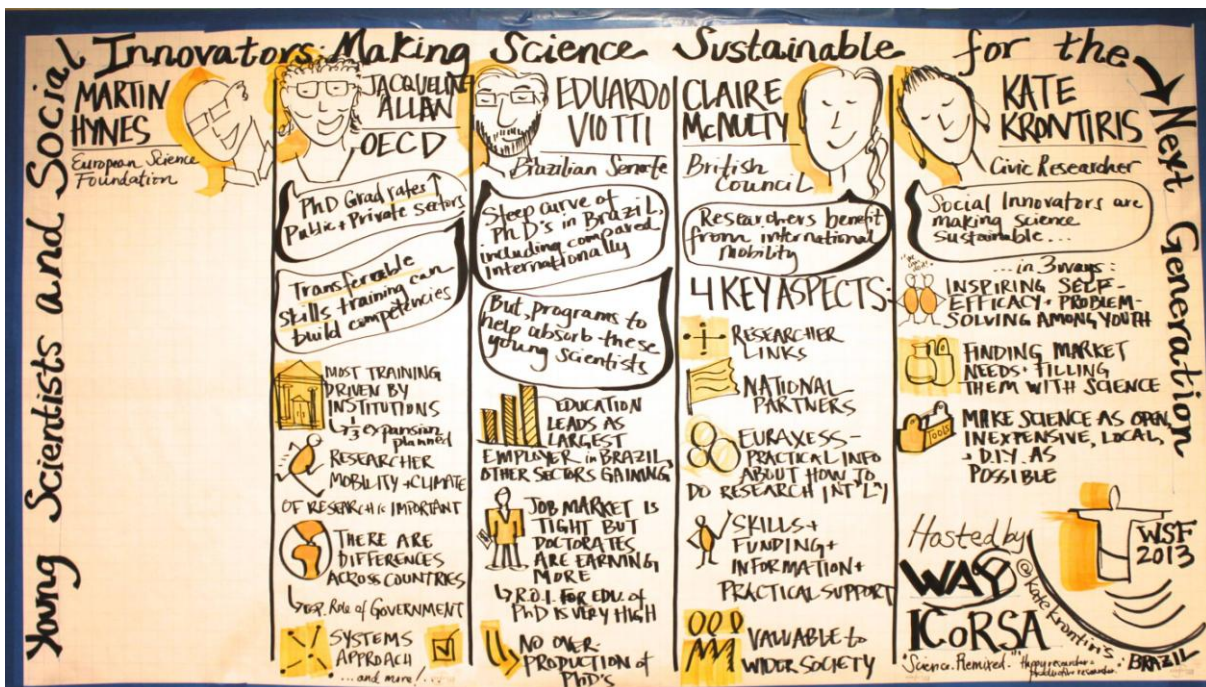 Young Scientists and Social
Innovators: Making Science Sustainable for the
Next Generation
MARTIN
HYNES
European Science
Foundation
JACQUELINE
ALLAN
OECD
PhD Grad rates ↑
Public + Private Sectors
Transferable
skills training can
build competencies
MOST TRAINING
DRIVEN BY
INSTITUTIONS
↳ 1/3 expansion
planned
RESEARCHER
MOBILITY + CLIMATE
OF RESEARCH is IMPORTANT
THERE ARE
DIFFERENCES
ACROSS COUNTRIES
↳ esp. Role of GOVERNMENT
SYSTEMS
APPROACH
...and more!...
EDUARDO
VIOTTI
Brazilian Senate
Steep curve of
PhD's in BRAZIL,
including compared
internationally
But, programs to
help absorb these
young scientists
EDUCATION
LEADS AS
LARGEST
EMPLOYER in BRAZIL,
OTHER SECTORS GAINING
JOB MARKET IS
TIGHT BUT
DOCTORATES
ARE EARNING
MORE
↳ R.O.I. FOR EDU. of
PhD IS VERY HIGH
NO OVER-
PRODUCTION of
PhD's
CLAIRE
McNULTY
British
Council
Researchers benefit
from international
mobility
4 KEY ASPECTS:
RESEARCHER
LINKS
NATIONAL
PARTNERS
EURAXESS -
PRACTICAL INFO
ABOUT HOW TO
DO RESEARCH INT'L'Y
SKILLS +
FUNDING +
INFORMATION +
PRACTICAL SUPPORT
VALUABLE to
WIDER SOCIETY
KATE
KRONTIRIS
Civic Researcher
Social Innovators are
making science
sustainable...
...in 3 ways:
INSPIRING SELF-
EFFICACY + PROBLEM-
SOLVING AMONG YOUTH
FINDING MARKET
NEEDS + FILLING
THEM WITH SCIENCE
TOOLS
MAKE SCIENCE AS OPEN,
INEXPENSIVE, LOCAL,
+ D.I.Y. AS
POSSIBLE
Hosted by
WAYS
ICoRSA
WSF
2013
BRAZIL
@KateKrontiris
"Science. Remixed."